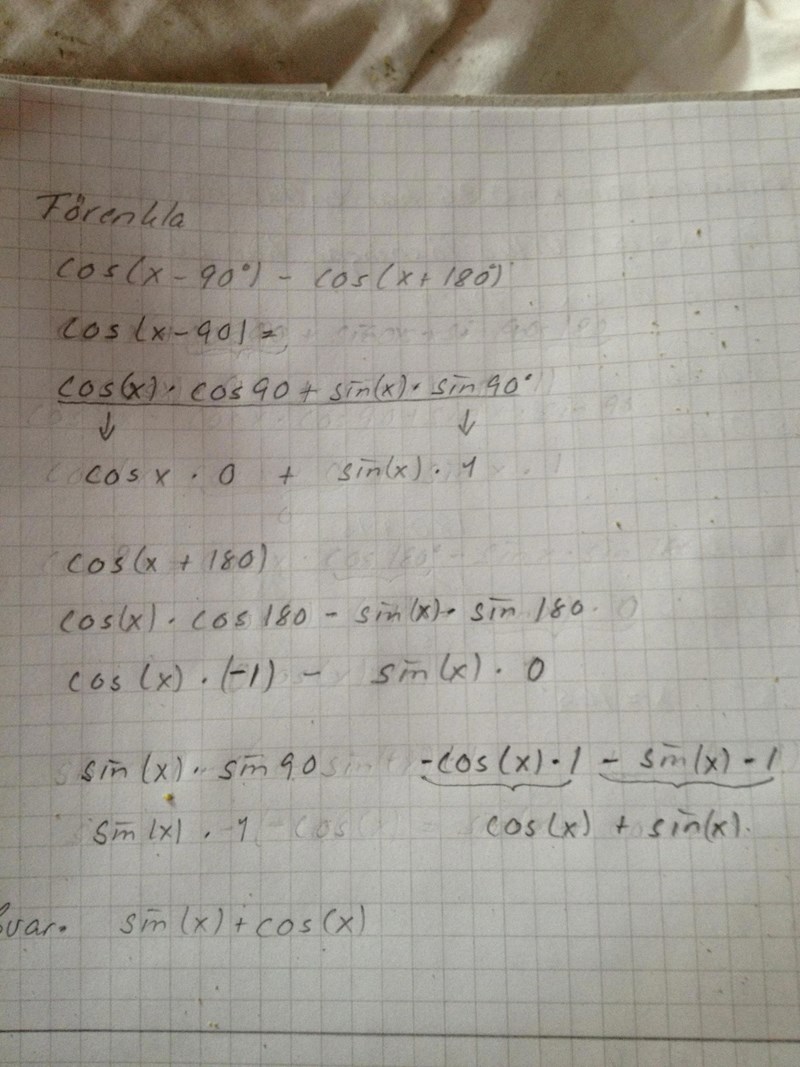 Förenkla
cos(x - 90°) - cos(x + 180°)
cos(x - 90) =
cos(x) · cos 90 + sin(x) · sin 90°
↓ ↓
cos x · 0 + sin(x) · 1
cos(x + 180)
cos(x) · cos 180 - sin(x) · sin 180
cos(x) · (-1) - sin(x) · 0
sin(x) · sin 90 -cos(x) · 1 - sin(x) · 1
sin(x) · 1 cos(x) + sin(x).
Svar. sin(x) + cos(x)